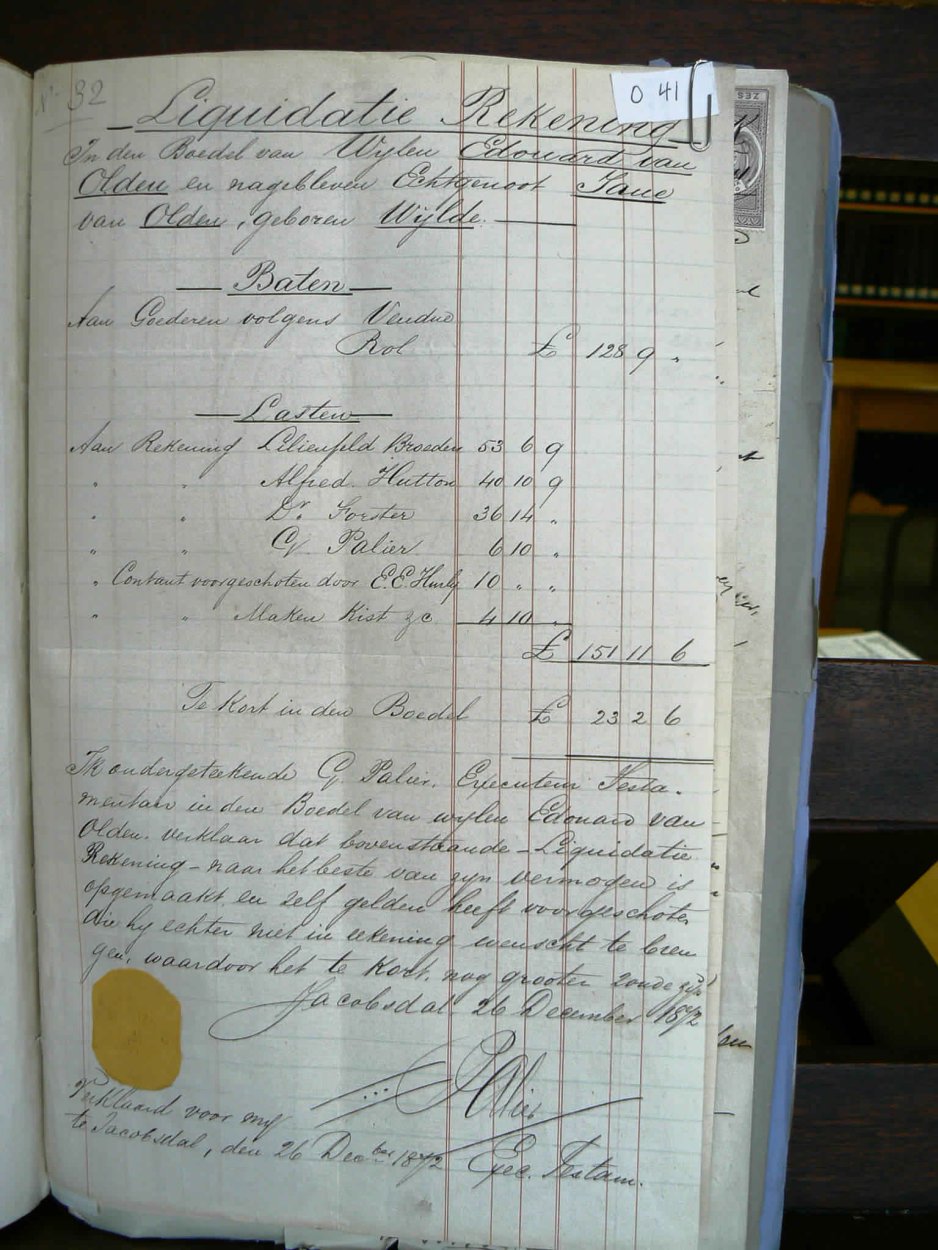 No 32
O 41
Liquidatie Rekening
In den Boedel van Wylen Edouard van
Olden en nagebleven Echtgenoot Jane
van Olden, geboren Wylde.
Baten
Aan Goederen volgens Vendue
Rol £ 128 9 "
Lasten
Aan Rekening Lilienfeld Broeden 53 6 9
" " Alfred. Hutton 40 10 9
" " Dr Forster 36 14 "
" " G. Palier 6 10 "
" Contant voorgeschoten door E.E. 10 " "
" " Maken Kist &c 4 10 "
£ 151 11 6
Te Kort in den Boedel £ 23 2 6
Ik ondergeteekende G. Palier, Executeur Testa-
mentair in den Boedel van wylen Edouard van
Olden. verklaar dat bovenstaande Liquidatie
Rekening naar het beste van zyn vermogen is
opgemaakt, en zelf gelden heeft voorgeschoten
die hy echter niet in rekening wenscht te bren
gen, waardoor het te Kort, nog grooter zoude zyn
Jacobsdal. 26 December 1872
G Palier
Verklaard voor my
te Jacobsdal, den 26 Decber 1872 Exec. Testam.